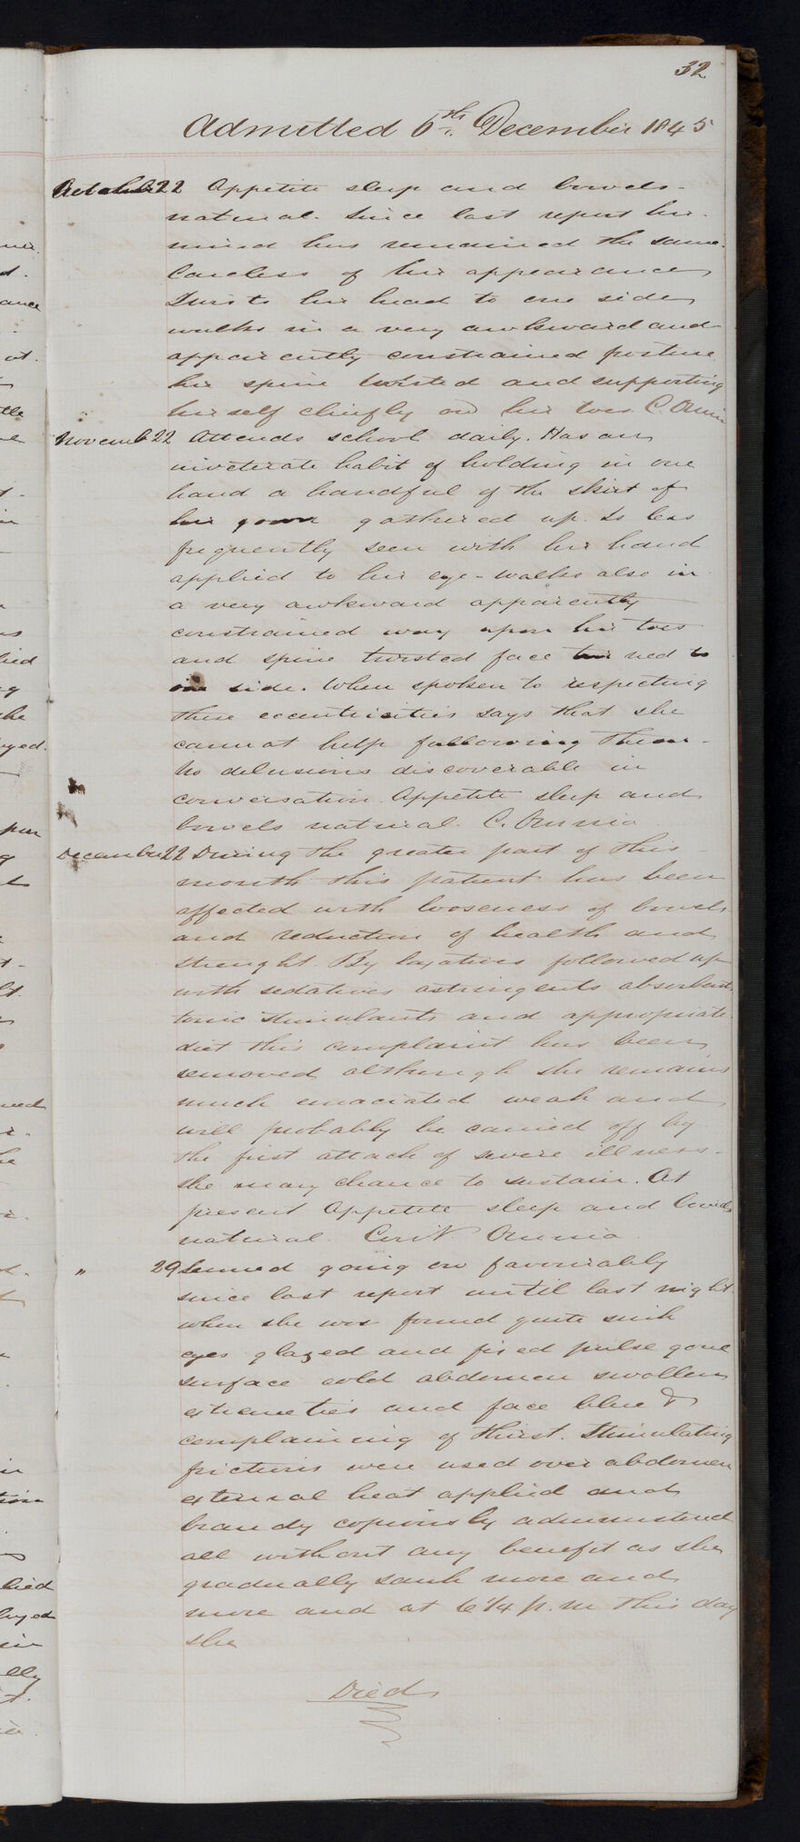 32
Admitted 6th December 1845
October 22 Appetite sleep and bowels
natural. Since last report her
mind has remained the same.
Careless of her appearance
Turns her head to one side
walks in a very awkward and
apparently constrained posture
her spine twisted and supporting
herself chiefly on her toes C. Omnia
Novemb 22 Attends school daily. Has an
inveterate habit of holding in one
hand a handful of the skirt of
her gown gathered up. Is less
frequently seen with her hand
applied to her eye - walks also in
a very awkward apparently
constrained way upon her toes
and spine twisted face turned to
one side. When spoken to respecting
these eccentricities says that she
cannot help following them -
No delusions discoverable in
conversation. Appetite sleep and
bowels natural. C. Omnia
December 22 During the greater part of this
month this patient has been
affected with looseness of bowels
and reduction of health and
strenght. By laxatives followed up
with sedatives astringents absorbents
tonic stimulants and appropriate
diet this complaint has been
removed although she remains
much emaciated weak and
will probably be carried off by
the first attack of severe illness
she may chance to sustain. At
present Appetite sleep and bowels
natural. Cont Omnia
" 29 Seemed going on favourably
since last report until last night
when she was found quite sunk
eyes glazed and fixed pulse gone
surface cold abdomen swollen
extremeties and face blue &
complaining of thirst. Stimulating
frictions were used over abdomen
external heat applied and
brandy copiously administered
all without any benefit as she
gradually sank more and
more and at 6 1/4 p.m this day
she
Died